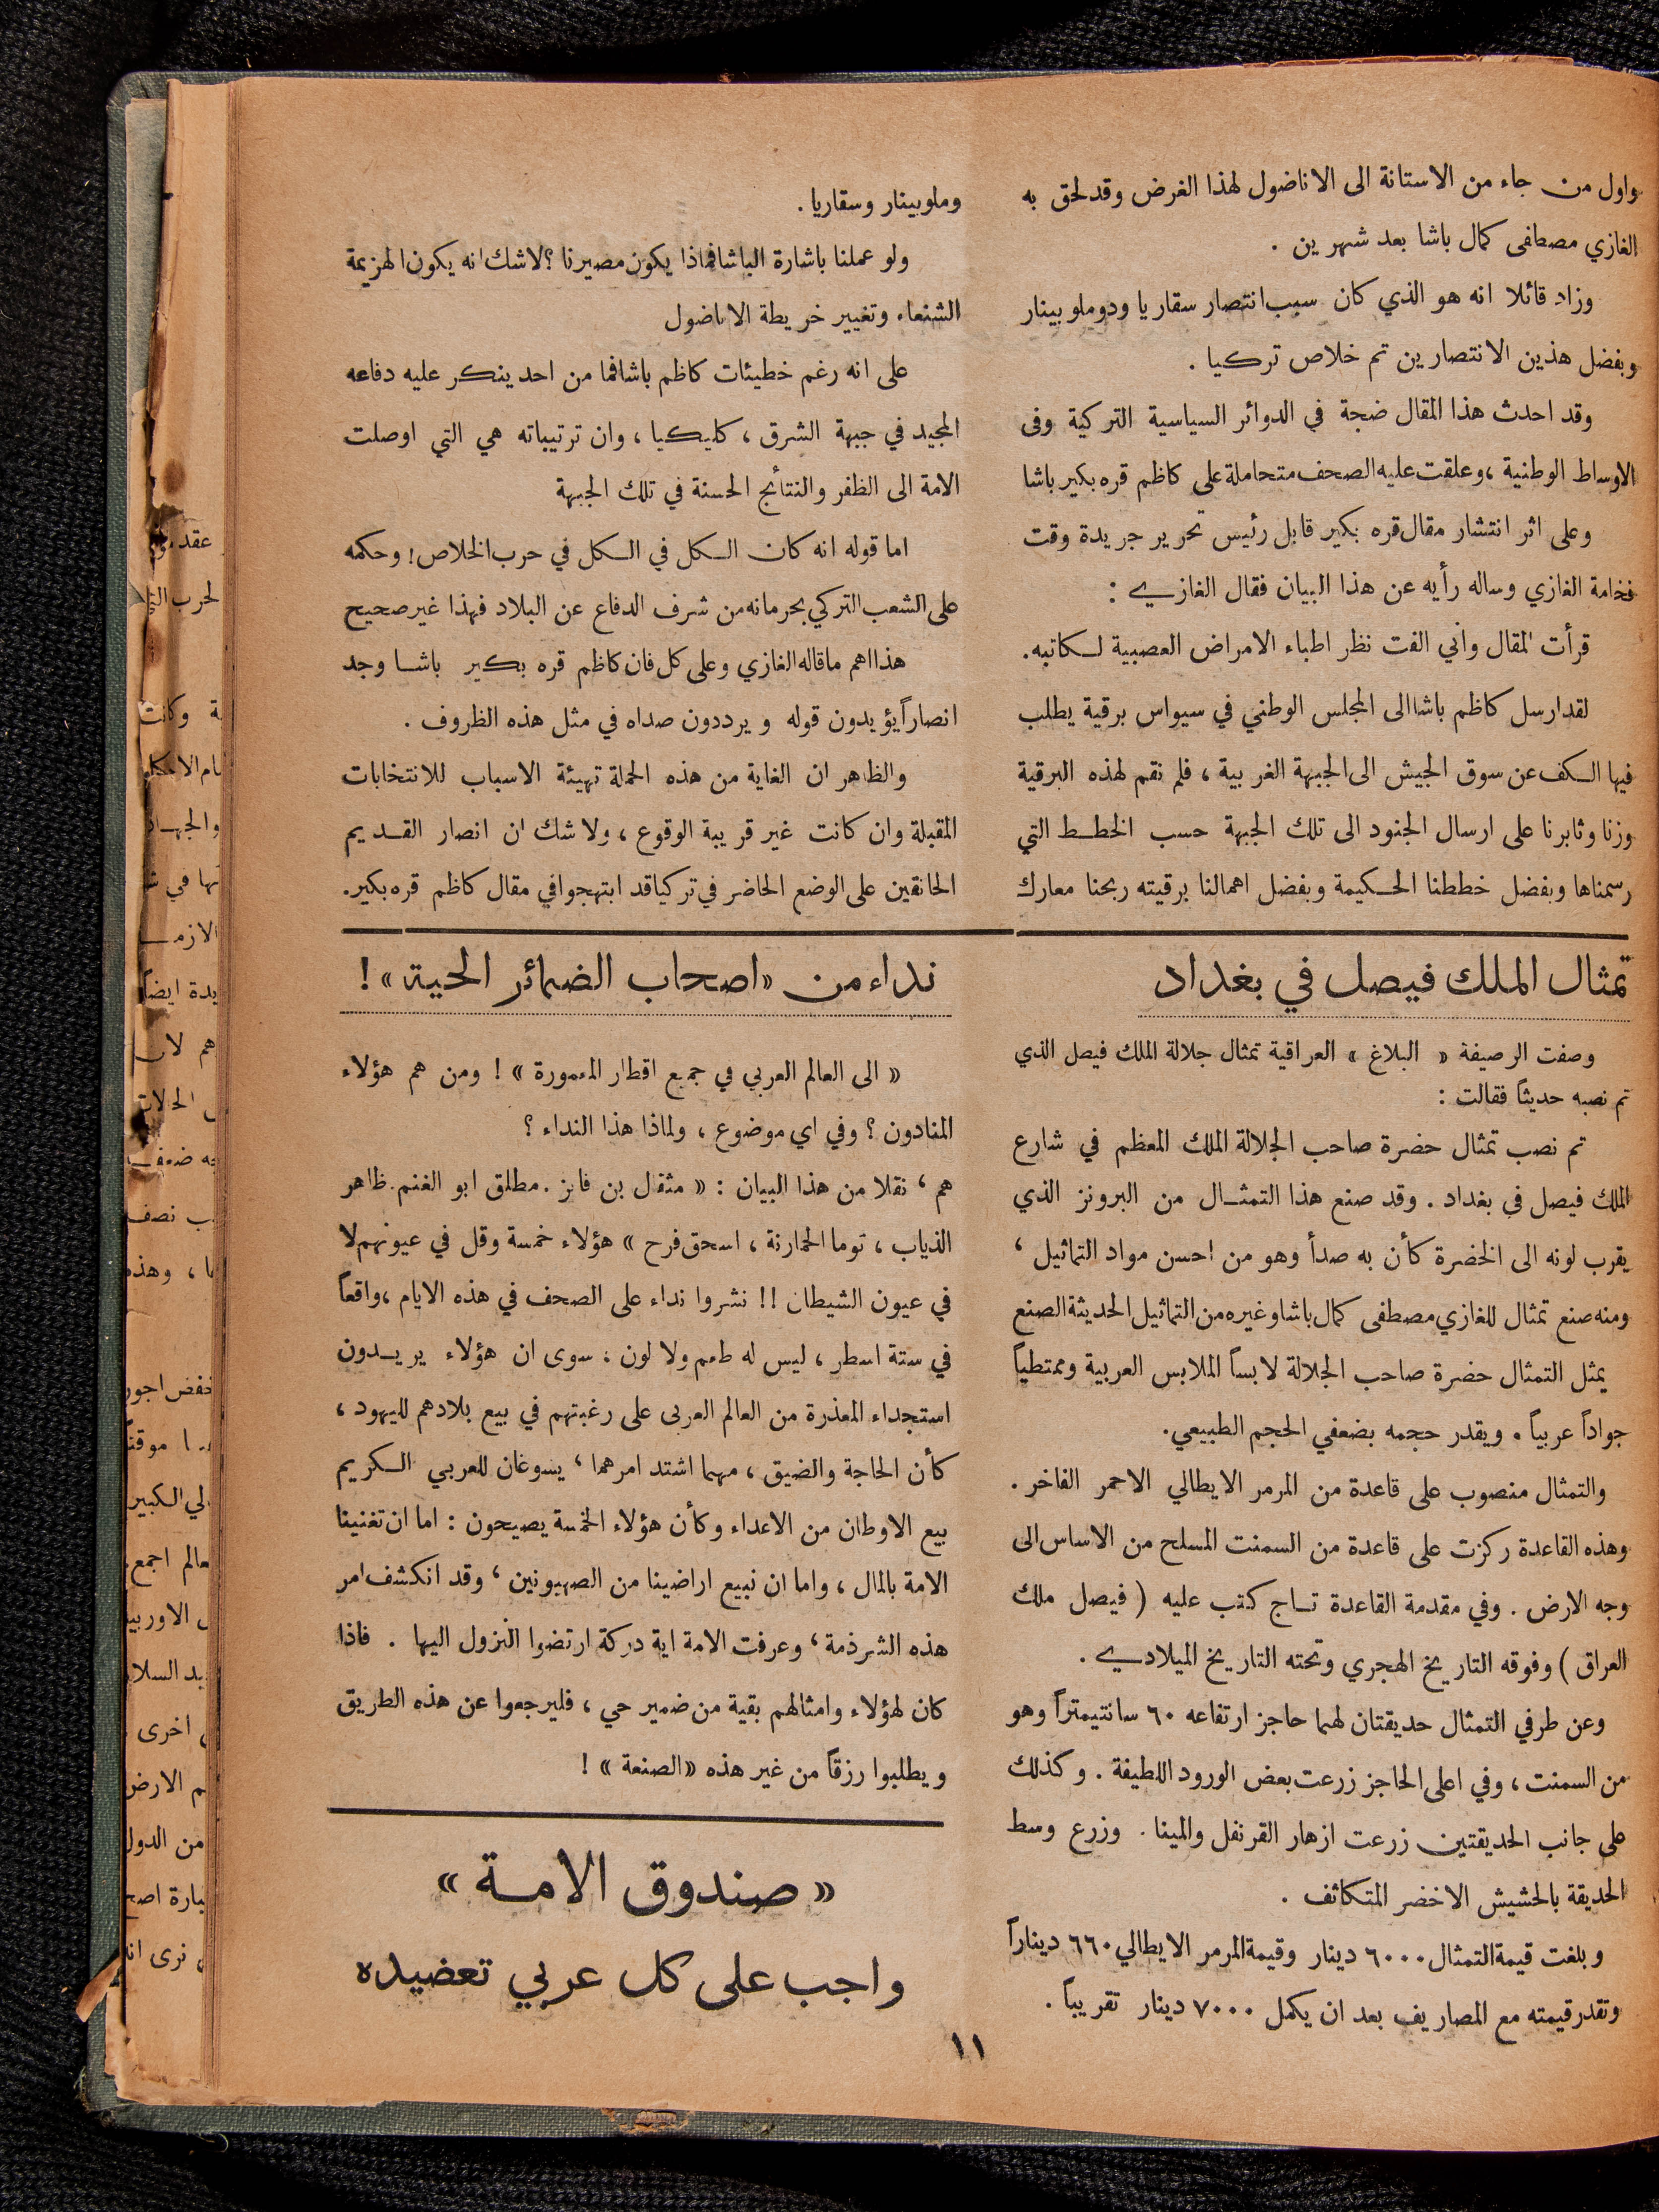 واول من جاء من الاستانة الى الاناضول لهذا الغرض وقد لحق به
الغازي مصطفى كمال باشا بعد شهرين .
وزاد قائلا انه هو الذي كان سبب انتصار سقاريا ودوملو بينار
وبفضل هذين الانتصارين تم خلاص تركيا .
وقد احدث هذا المقال ضجة في الدوائر السياسية التركية وفى
الاوساط الوطنية ، وعلقت عليه الصحف متحاملة على كاظم قره بكير باشا
وعلى اثر انتشار مقال قره بكير قابل رئيس تحرير جريدة وقت
فخامة الغازي وساله رأيه عن هذا البيان فقال الغازي :
قرأت المقال واني الفت نظر اطباء الامراض العصبية لكاتبه .
لقد ارسل كاظم باشا الى المجلس الوطني في سيواس برقية يطلب
فيها الكف عن سوق الجيش الى الجبهة الغربية ، فلم نقم لهذه البرقية
وزنا وثابرنا على ارسال الجنود الى تلك الجبهة حسب الخطط التي
رسمناها وبفضل خططنا الحكيمة وبفضل اهمالنا برقيته ربحنا معارك
وملوبينار وسقاريا .
ولو عملنا باشارة الباشا فماذا يكون مصيرنا ؟ لاشك انه يكون الهزيمة
الشنعاء وتغيير خريطة الاناضول
على انه رغم خطيئات كاظم باشا فما من احد ينكر عليه دفاعه
المجيد في جبهة الشرق ، كليكيا ، وان ترتيباته هي التي اوصلت
الامة الى الظفر والنتائج الحسنة في تلك الجبهة
اما قوله انه كان الكل في الكل في حرب الخلاص ! وحكمه
على الشعب التركي بحرمانه من شرف الدفاع عن البلاد فهذا غير صحيح
هذا اهم ما قاله الغازي وعلى كل فان كاظم قره بكير باشا وجد
انصاراً يؤيدون قوله ويرددون صداه في مثل هذه الظروف .
والظاهر ان الغاية من هذه الحملة تهيئة الاسباب للانتخابات
المقبلة وان كانت غير قريبة الوقوع ، ولا شك ان انصار القديم
الحانقين على الوضع الحاضر في تركيا قد ابتهجوا في مقال كاظم قره بكير .
تمثال الملك فيصل في بغداد
وصفت الرصيفة « البلاغ » العراقية تمثال جلالة الملك فيصل الذي
تم نصبه حديثاً فقالت :
تم نصب تمثال حضرة صاحب الجلالة الملك المعظم في شارع
الملك فيصل في بغداد . وقد صنع هذا التمثال من البرونز الذي
يقرب لونه الى الخضرة كأن به صدأ وهو من احسن مواد التماثيل ،
ومنه صنع تمثال للغازي مصطفى كمال باشا وغيره من التماثيل الحديثة الصنع
يمثل التمثال حضرة صاحب الجلالة لابساً الملابس العربية وممتطياً
جواداً عربياً . ويقدر حجمه بضعفي الحجم الطبيعي .
والتمثال منصوب على قاعدة من المرمر الايطالي الاحمر الفاخر .
وهذه القاعدة ركزت على قاعدة من السمنت المسلح من الاساس الى
وجه الارض . وفي مقدمة القاعدة تاج كتب عليه ( فيصل ملك
العراق ) وفوقه التاريخ الهجري وتحته التاريخ الميلادي .
وعن طرفي التمثال حديقتان لهما حاجز ارتفاعه ٦٠ سانتيمتراً وهو
من السمنت ، وفي اعلى الحاجز زرعت بعض الورود اللطيفة . وكذلك
على جانب الحديقتين زرعت ازهار القرنفل والمينا . وزرع وسط
الحديقة بالحشيش الاخضر المتكاثف .
وبلغت قيمة التمثال ٦٠٠٠ دينار وقيمة المرمر الايطالي ٦٦٠ ديناراً
وتقدر قيمته مع المصاريف بعد ان يكمل ٧٠٠٠ دينار تقريباً .
نداء من «اصحاب الضمائر الحية» !
« الى العالم العربي في جميع اقطار المعمورة » ! ومن هم هؤلاء
المنادون ؟ وفي اي موضوع ، ولماذا هذا النداء ؟
هم ، نقلا من هذا البيان : « مثقال بن فايز . مطلق ابو الغنم . ظاهر
الذياب ، توما الحمارنة ، اسحق فرح » هؤلاء خمسة وقل في عيونهم لا
في عيون الشيطان !! نشروا نداء على الصحف في هذه الايام ، واقعاً
في ستة اسطر ، ليس له طعم ولا لون ، سوى ان هؤلاء يريدون
استجداء المعذرة من العالم العربى على رغبتهم في بيع بلادهم لليهود ،
كأن الحاجة والضيق ، مهما اشتد امرهما ، يسوغان للعربي الكريم
بيع الاوطان من الاعداء وكأن هؤلاء الخمسة يصيحون : اما ان تغنينا
الامة بالمال ، واما ان نبيع اراضينا من الصهيونين ، وقد انكشف امر
هذه الشرذمة ، وعرفت الامة اية دركة ارتضوا النزول اليها . فاذا
كان لهؤلاء وامثالهم بقية من ضمير حي ، فليرجعوا عن هذه الطريق
ويطلبوا رزقاً من غير هذه «الصنعة» !
« صندوق الامة »
واجب على كل عربي تعضيده
١١
عقد
لحرب
وكانت
والجهاد
يدة ايضاً
هم لان
الحالات
نصف
ا ، وهذه
اجور
موقتاً
لي الكبير
عالم اجمع
الاوربية
اخرى
الارض
من الدول
نرى